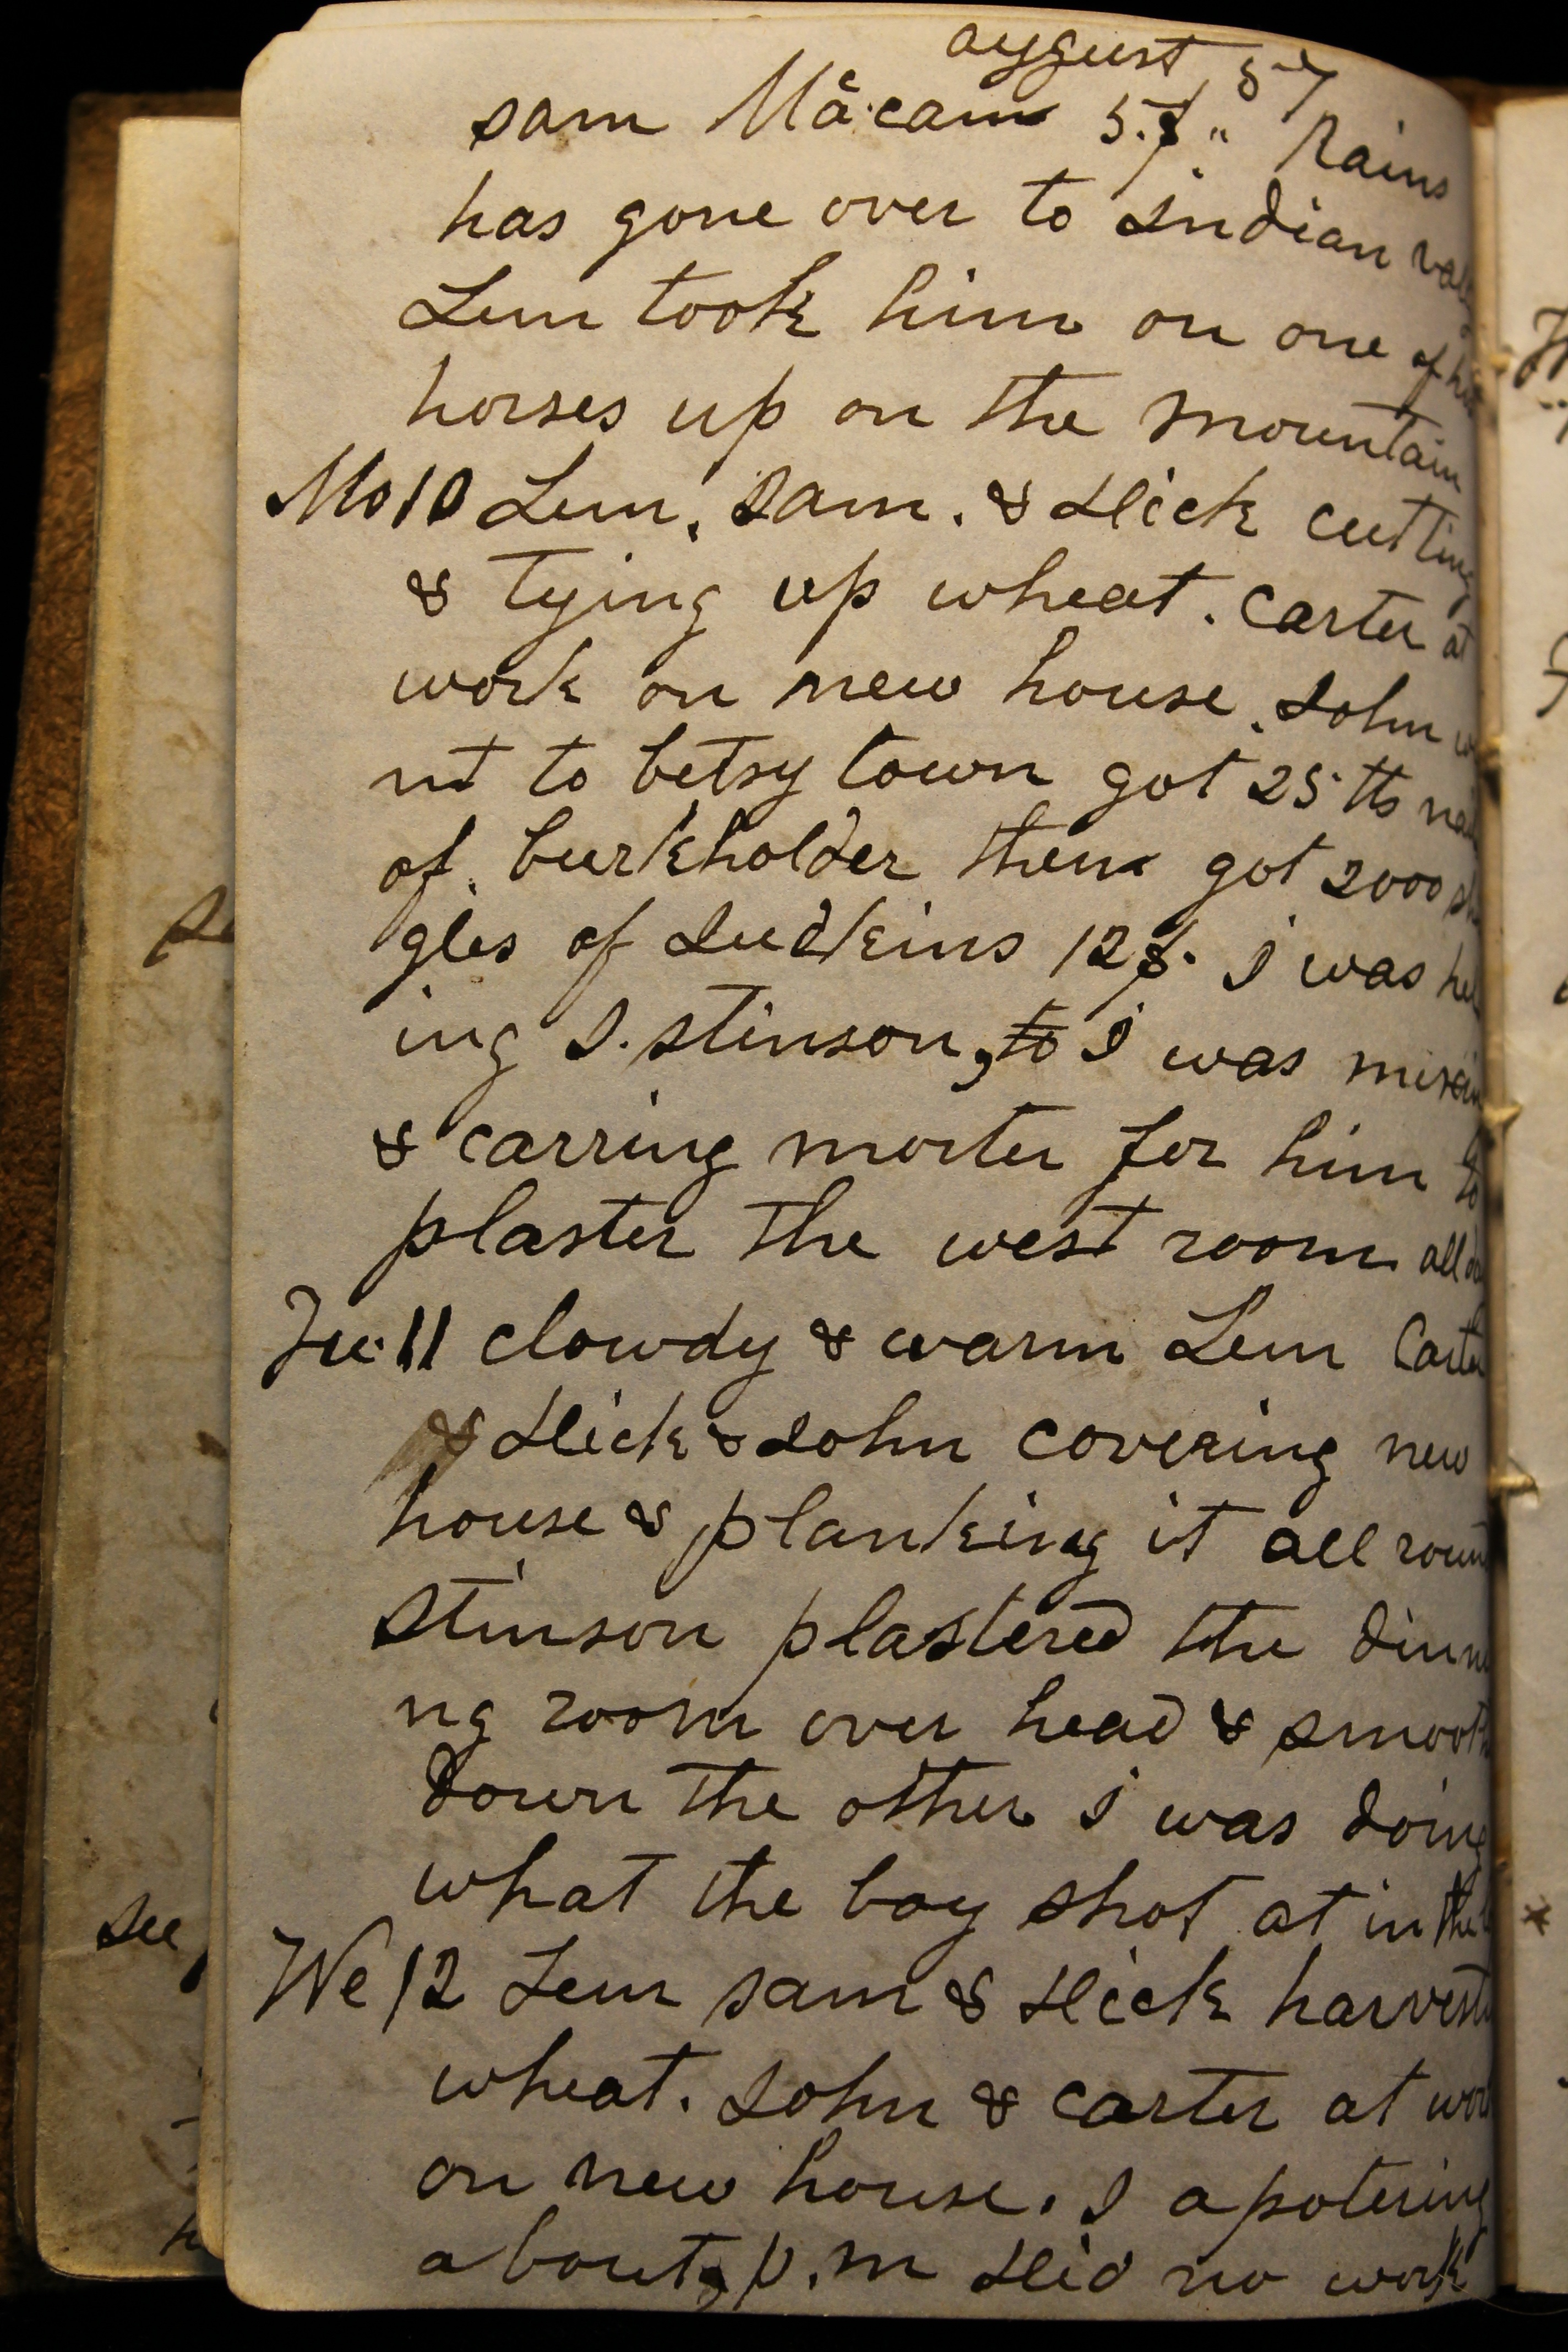 august, 57
sam Mccam 5.$.. Rains
has gone over to indian
Lem took him on one of
horses up on the mountain
Mo 10 Lem, Sam. & Dick cutting
& tying up wheat. Carter at
work on new house. John
nt to betsy town got 25 lbs
of burkholder then got 2000
gles of Judkins 12$. I was
ing S. stinson, to I was mixin
& carring morter for him to
plaster the west room all
Tu. 11 clowdy & warm Lem Carter
& Dick & John covering new
house & planking it all round
stinson plastered the dinni
ng room over head & smooth
down the other I was doing
what the boy shot at in the
We 12 Lem sam & Dick harvest
wheat. John & carter at work
on new house. I a potering
about, p.m Did no work